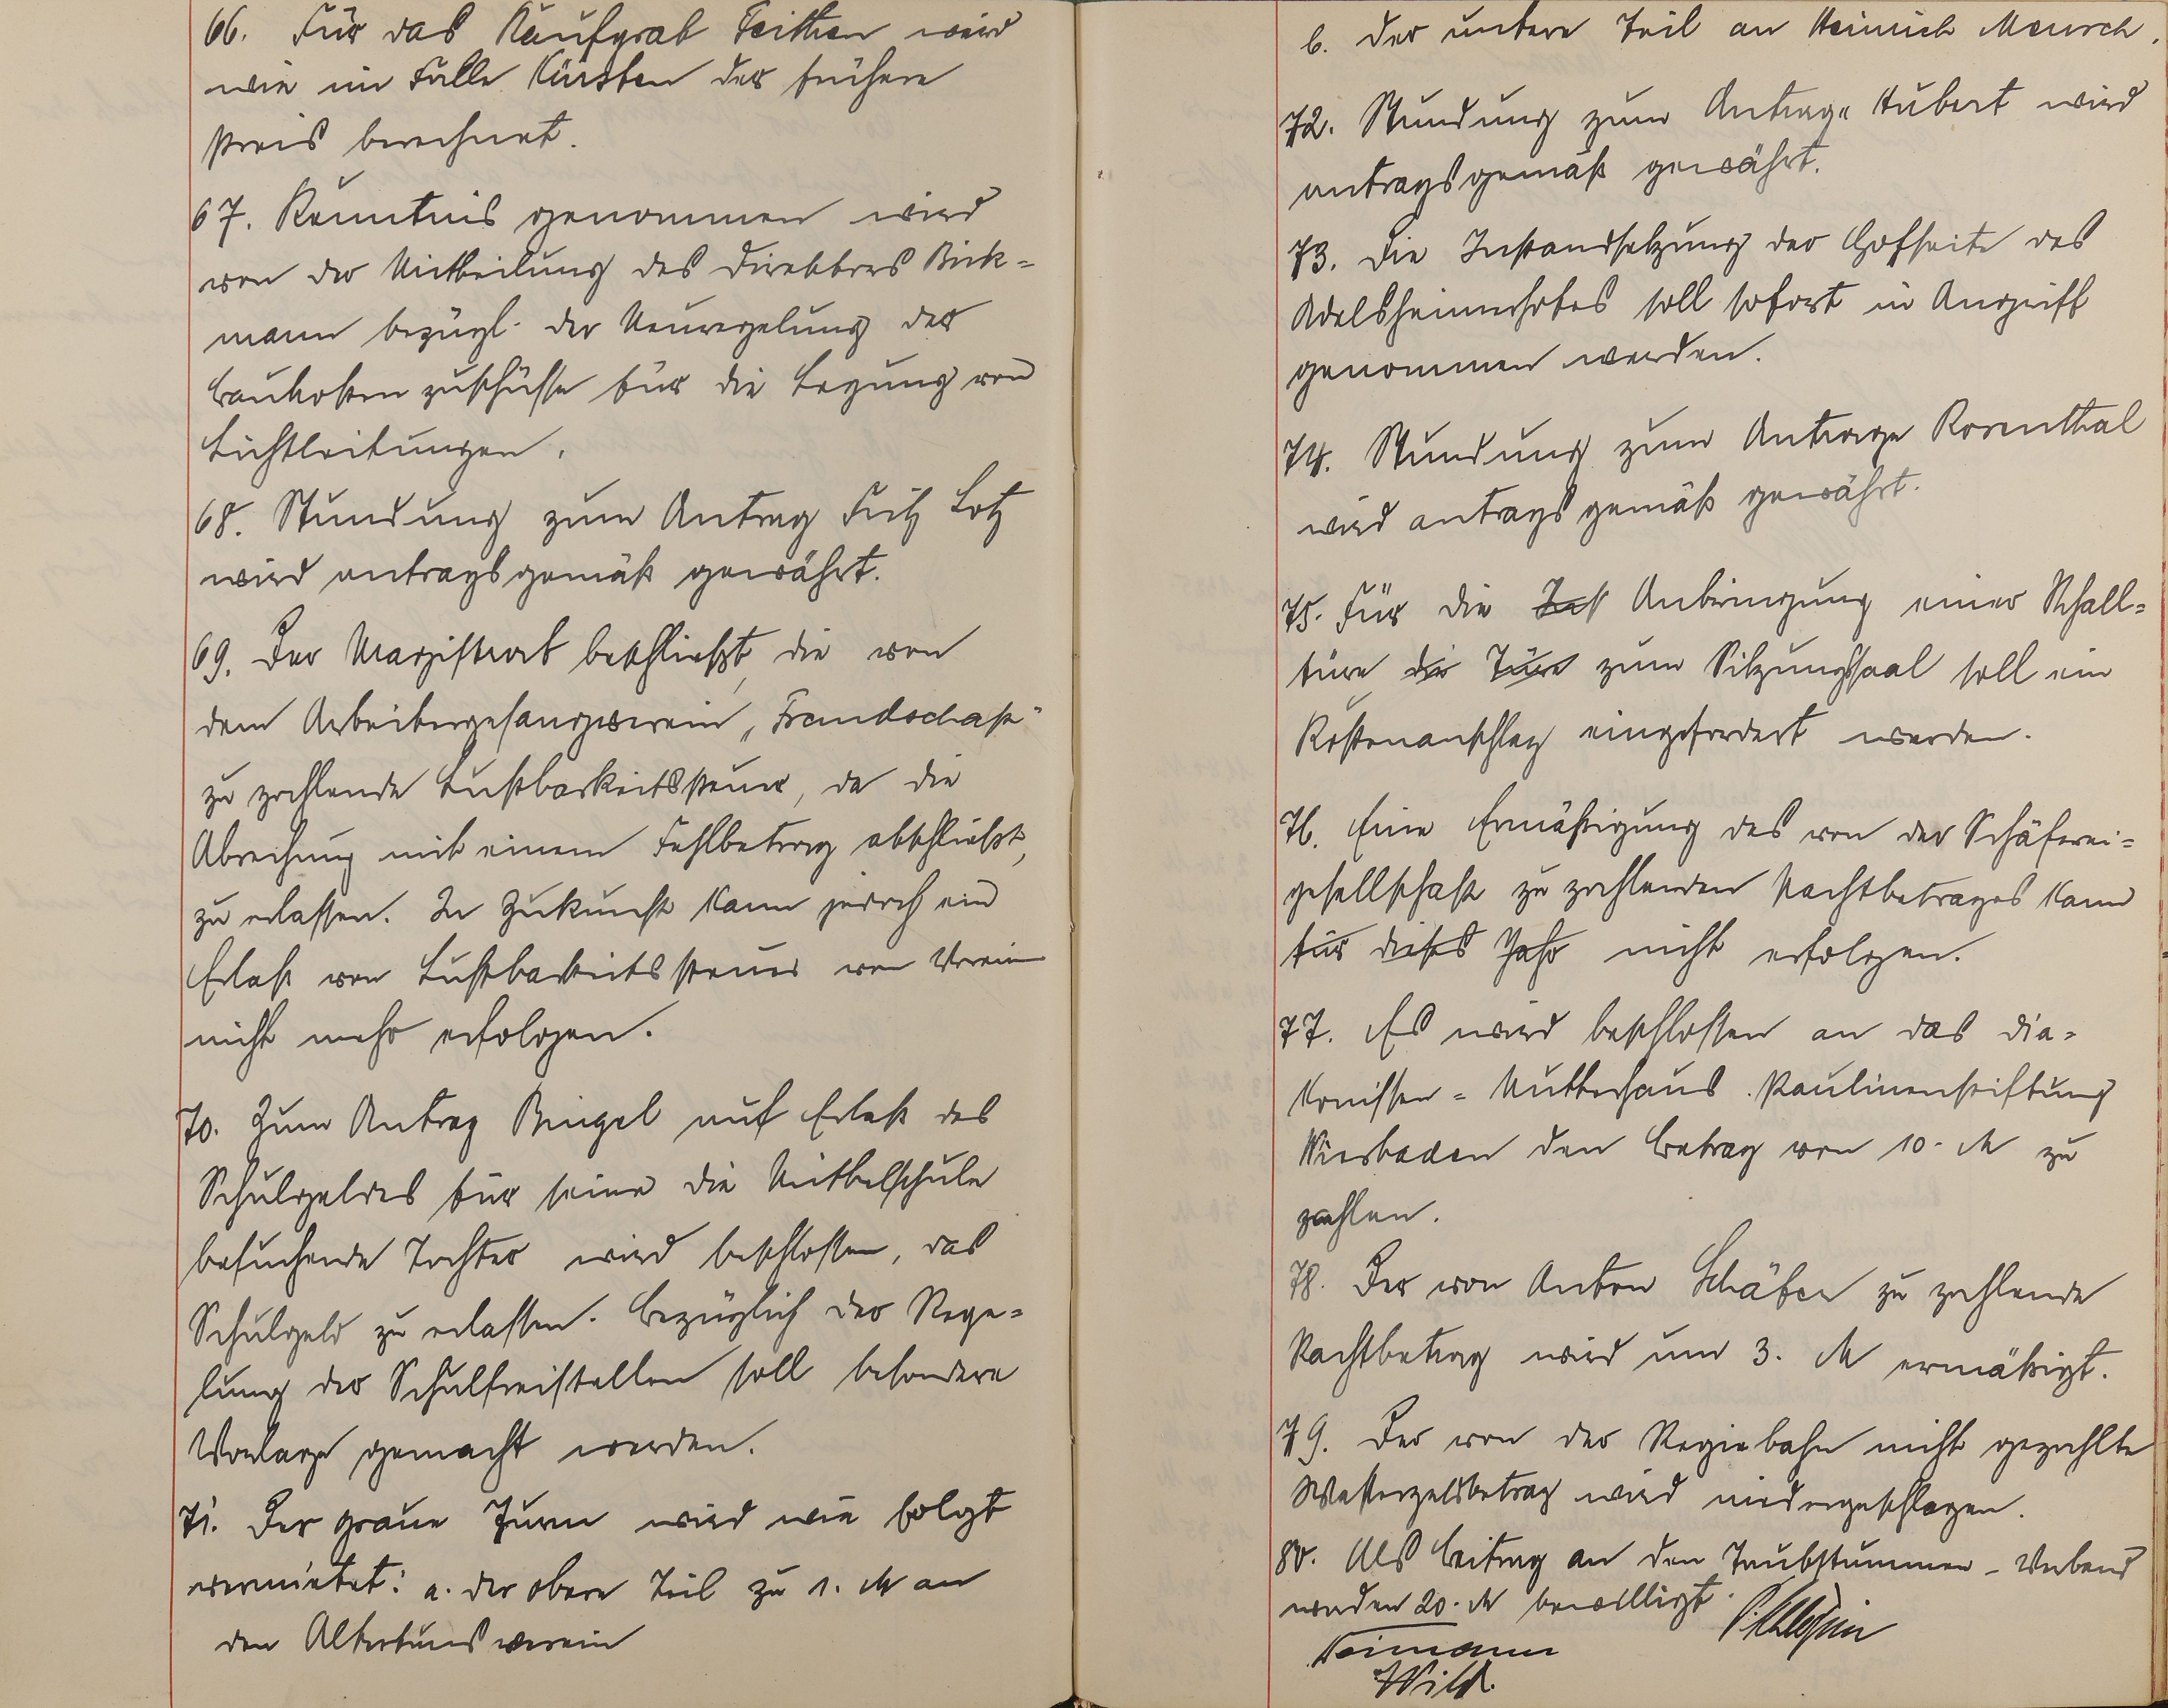 66. Für das Kaufgrab Feithen wird
wie im Falle Kürsten der frühere
Preis berechnet.
67. Kenntnis genommen wird
von der Mitteilung des Direktors Bick=
mann bezügl. der Neuregelung der
Baukosten zuschüsse für die Legung von
Lichtleitungen.
68. Stundung zum Antrag Fritz Lotz
wird antragsgemäß gewährt.
69. Der Magistrat beschließt, die von
dem Arbeitergesangverein „Freundschaft"
zu zahlende Lustbarkeitssteuer, da die
Abrechung mit einem Fehlbetrag abschließt,
zu erlassen. In Zukunft kann jedoch ein
Erlaß von Lustbarkeitssteuer von Verein
nicht mehr erfolgen.
70. Zum Antrag Bingel auf Erlaß des
Schulgeldes für seine die Mittelschule
besuchende Tochter wird beschlossen, das
Schulgeld zu erlassen. Bezüglich der Rege=
lung der Schulfreistellen soll besondere
Vorlage gemacht werden.
71. Der graue Turm wird wie folgt
vermietet: a. der obere Teil zu 1. M an
den Altertumsverein
b. der untere Teil an Heinrich Meusch.
72. Stundung zum Antrage Hubert wird
antragsgemäß gewährt.
73. Die Instandsetzung der Hofseite des
Adelsheimerhofes soll sofort in Angriff
genommen werden.
74. Stundung zum Antrage Rosenthal
wird antragsgemäß gewährt.
75. Für die Inst Anbringung einer Schall=
türe die Türe zum Sitzungssaal soll ein
Kostenanschlag eingefordert werden.
76. Eine Ermäßigung des von der Schäferei=
gesellschaft zu zahlenden Pachtbetrages kann
für dieses Jahr nicht erfolgen.
77. Es wird beschlossen an das Dia=
konissen = Mutterhaus Paulinenstiftung
Wiesbaden den Betrag von 10.- M zu
zahlen.
78. Der von Anton Schäfer zu zahlende
Pachtbetrag wird um 3. M ermäßigt.
79. Der von der Regiebahn nicht gezahlte
Wassergeldbetrag wird niedergeschlagen.
80. Als Beitrag an den Taubstummen - Verband
werden 20. M bewilligt.
Wild.